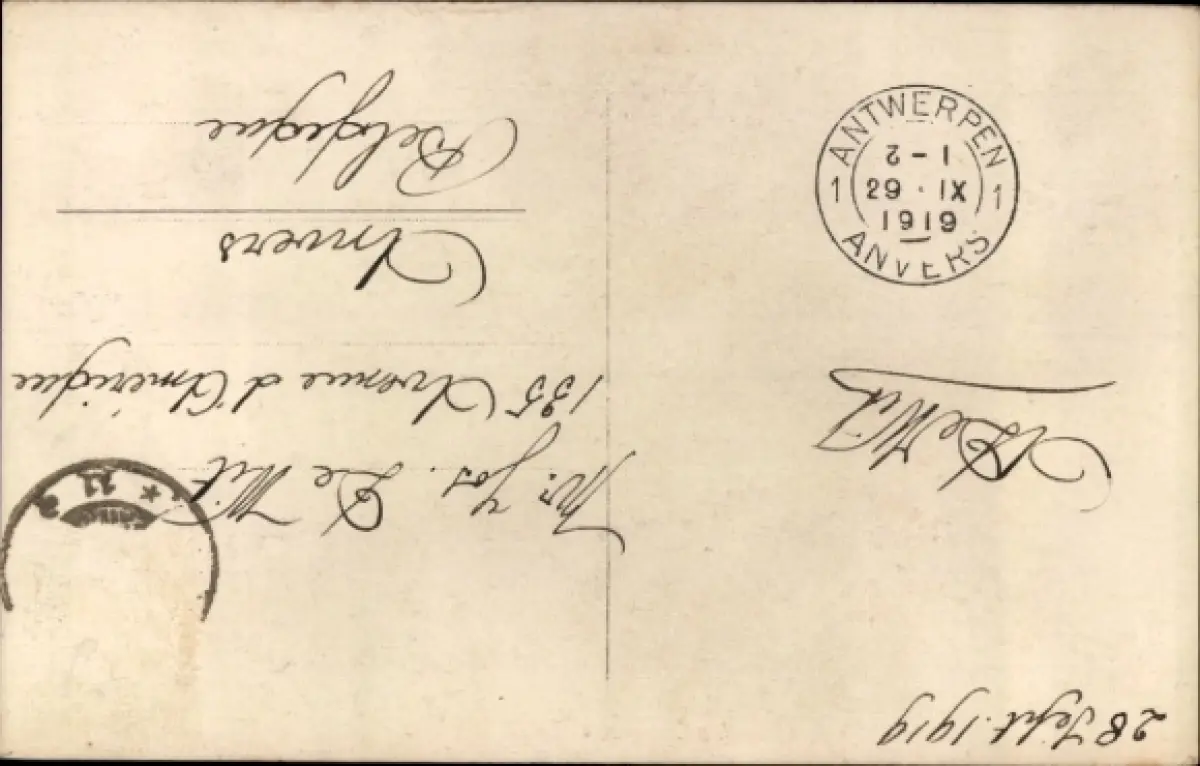 28 Sept. 1919
De Wit
Mr. Jos. De Wit
135 Avenue d'Amérique
Anvers
Belgique
ANTWERPEN
1 2-1 1
29 · IX
1919
ANVERS
* 11